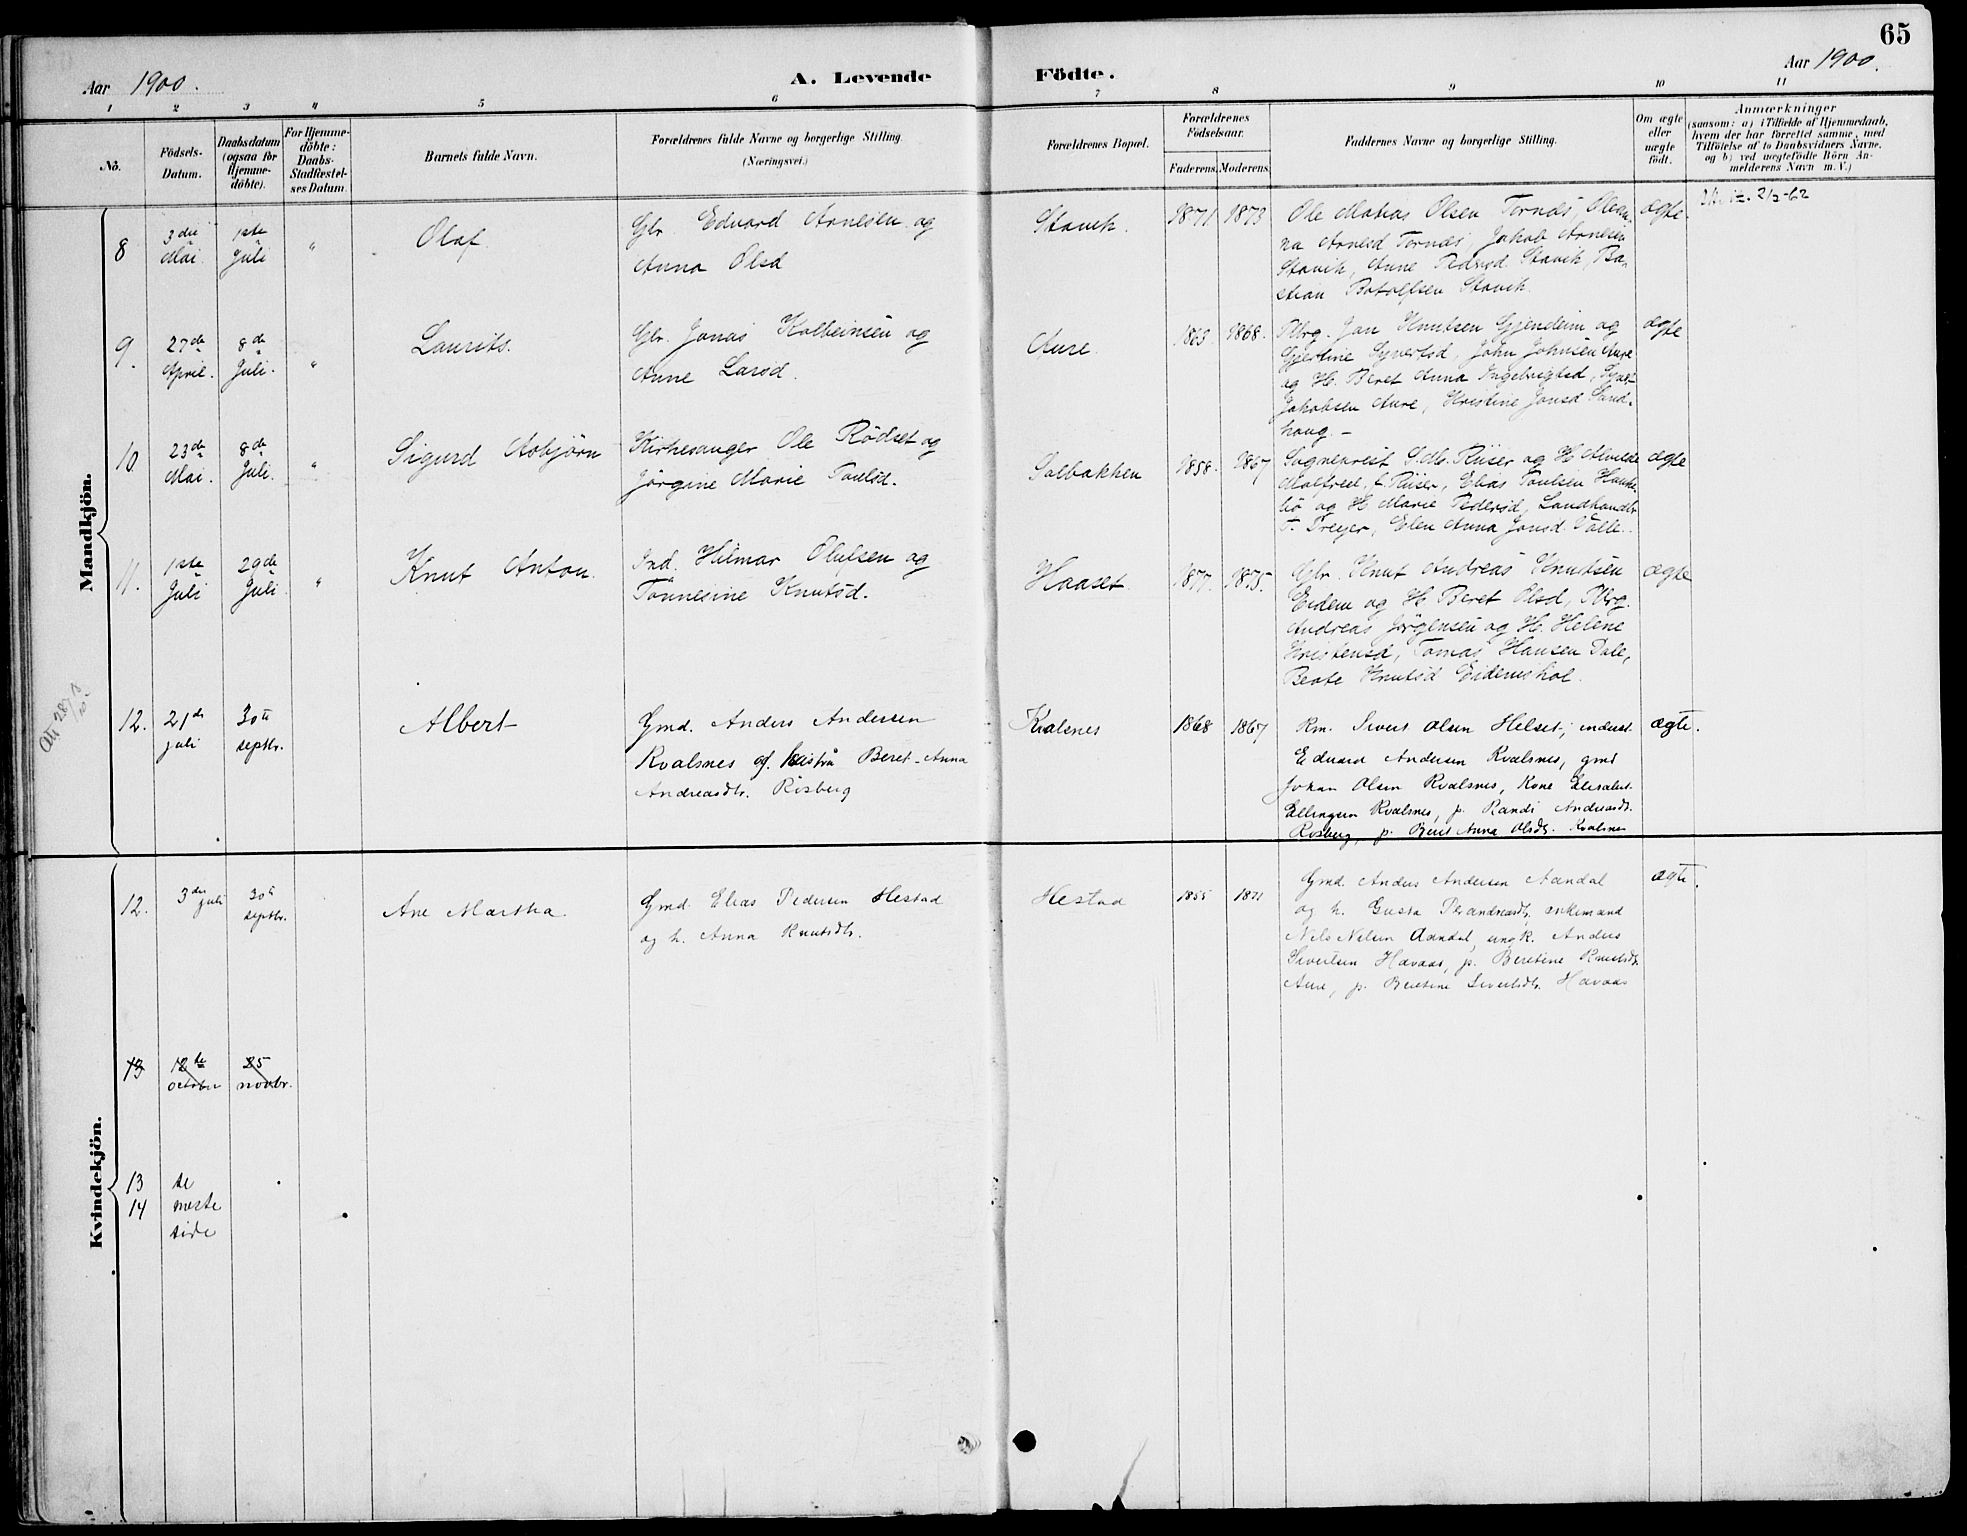 65
Aar 1900.
A. Levende Födte.
Aar 1900.
1 2 3 4 5 6 7 8 9 10 11
No.
Födsels-
Datum.
Daabsdatum
(ogsaa for
Hjemme-
döbte).
For Hjemme-
döbte:
Daabs-
Stadfæstel-
ses Datum.
Barnets fulde Navn.
Forældrenes fulde Navne og borgerlige Stilling.
(Næringsvei.)
Forældrenes Bopæl.
Forældrenes
Födselsaar.
Faderens. Moderens.
Faddernes Navne og borgerlige Stilling.
Om ægte
eller
uægte
födt.
Anmærkninger
(saasom: a) i Tilfælde af Hjemmedaab,
hvem der har forrettet samme, med
Tilföielse af to Daabsvidners Navne,
og b) ved uægtefödte Börn An-
melderens Navn m. V.)
Mandkjön.
8
3die
Mai.
1ste
Juli
"
Olaf.
Gbr. Edvard Arnesen og
Anna Olsd
Stavik.
1871 1873
Ole Matias Olsen Tornæs, Olean-
na Arnesd Tornæs, Jakob Arnesen
Stavik, Anne Pedersd. Stavik, Ba-
stian Botolfsen Stavik.
ægte.
2/2-62
9.
27de
April.
8de
Juli.
"
Laurits.
Gbr. Jonas Kolbeinsen og
Anne Larsd.
Aure.
1863 1868.
Pbrg. Jon Knutsen Gjendem og
Gjertine Syvertsd, John Johnsen Aure
og H. Beret Anna Ingebrigtsd, Syver
Jakobsen Aure, Kristine Jonsd Sand-
haug. -
ægte
10
23de
Mai.
8de
Juli.
"
Sigurd Asbjörn
Kirkesanger Ole Rödset og
Jörgine Marie Paulsd.
Solbakken
1858. 1867
Sogneprest S. M. Riiser og H. Alvilde
Malfred, f. Riiser, Elias Poulsen Hauke-
bö og H. Marie Pedersd, Landhandler
T. Preyer, Elen Anna Jonsd. Valle.
ægte
11.
1ste
Juli
29de
Juli.
"
Knut Anton.
Ind. Hilmar Olufsen og
Tönnesine Knutsd.
Haaset
1877. 1875.
Gbr. Knut Andreas Knutsen
Eidem og H. Beret Olsd, Pbrg.
Andreas Jörgensen og H. Helene
Kristensd, Tomas Hansen Dale,
Beate Knutsd Eidemshol.
ægte
12.
21de
juli
30te
septbr.
Albert
Gmd. Anders Andersen
Kvalsnes og hustru Beret-Anna
Andreasdtr. Risberg
Kvalsnes
1868 1867
Rm. Sivert Olsen Helset, inderst
Edvard Andersen Kvalsnes, gmd
Johan Olsen Kvalsnes, Kone Elisabet
Ellingsen Kvalsnes, p. Randi Andreasdtr.
Risberg, p. Beret Anna Olsdtr. Kvalsnes
ægte.
Kvindekjön.
12.
3die juli
30te
septbr.
Ane Martha.
Gmd. Elias Pedersen Hestad
og h. Anna Knutsdtr.
Hestad
1855 1871
Gmd. Anders Andersen Aandal
og h. Gusta Perandreasdtr. enkemand
Nils Nilsen Aandal, ungk. Anders
Sivertsen Havaas, p. Beretine Knutsdtr.
Aure, p. Beretine Sivertsdtr. Havaas
ægte.
13
12te
october
25
novbr.
13
14
se
næste
side